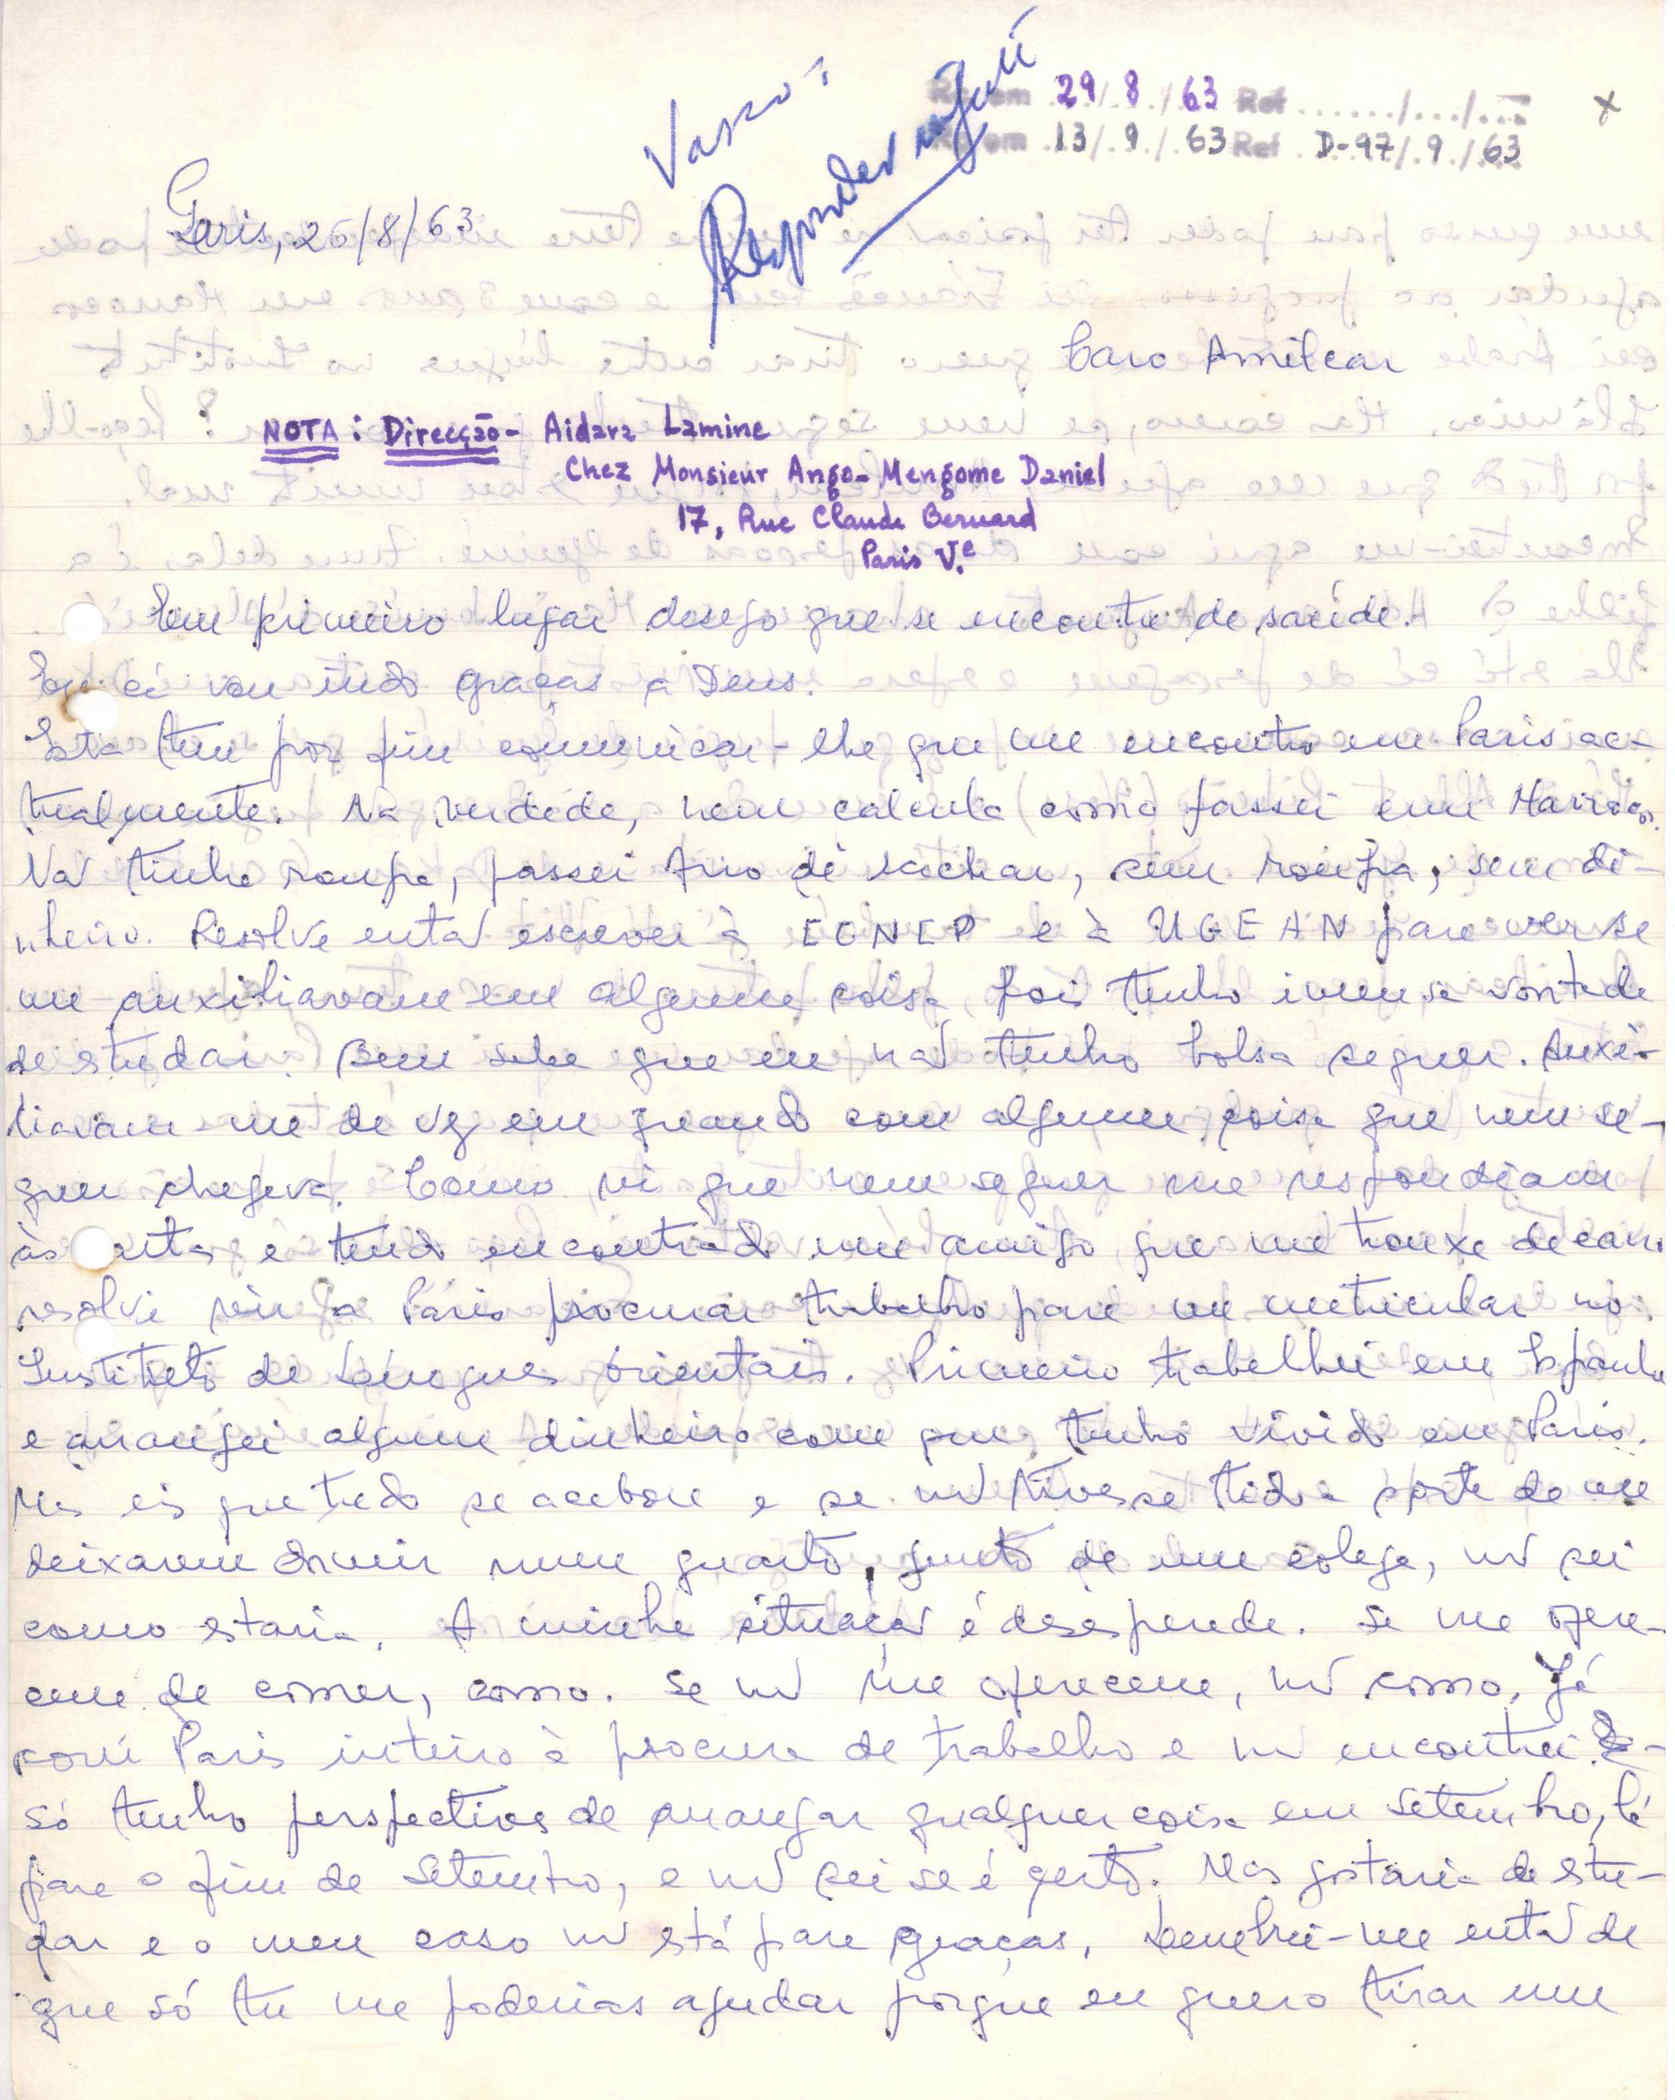 Vasco:
Responder
29/8/63 Ref ....../.../...
x
13/9/63 Ref D-97/9/63
Paris, 26/8/63
Caro Amilcar
NOTA: Direcção - Aidara Lamine
Chez Monsieur Ango-Mengome Daniel
17, Rue Claude Bernard
Paris V.e
Em primeiro lugar desejo que se encontre de saúde.
Eu cá vou indo graças a Deus.
Esta tem por fim comunicar-lhe que me encontro em Paris ac-
tualmente. Na verdade, nem calcula como passei em Marrocos.
Não tinha roupa, passei frio de rachar, sem roupa, sem di-
nheiro. Resolvi então escrever à CONCP e à UGEAN para ver se
me auxiliavam em alguma coisa, pois tenho imensa vontade
de estudar. Bem sabe que eu não tenho bolsa sequer. Auxi-
liavam-me de vez em quando com alguma coisa que nem se-
quer chegava. Como vi que nem sequer me respondiam
às cartas e tendo encontrado um amigo que me trouxe de carro
resolvi vir a Paris procurar trabalho para me matricular no
Instituto de Línguas Orientais. Primeiro trabalhei em Espanha
e arranjei algum dinheiro com que tenho vivido em Paris.
Mas eis que tudo se acabou e se não tivesse tido a sorte de me
deixarem dormir num quarto, junto de um colega, não sei
como estaria. A minha situação é desesperada. Se me ofere-
cem de comer, como. Se não me oferecem, não como. Já
corri Paris inteiro à procura de trabalho e não encontrei.
Só tenho perspectivas de arranjar qualquer coisa em Setembro, lá
para o fim de Setembro, e não sei se é certo. Mas gostaria de estu-
dar e o meu caso não está para graças. Lembrei-me então de
que só tu me poderias ajudar porque eu quero tirar um